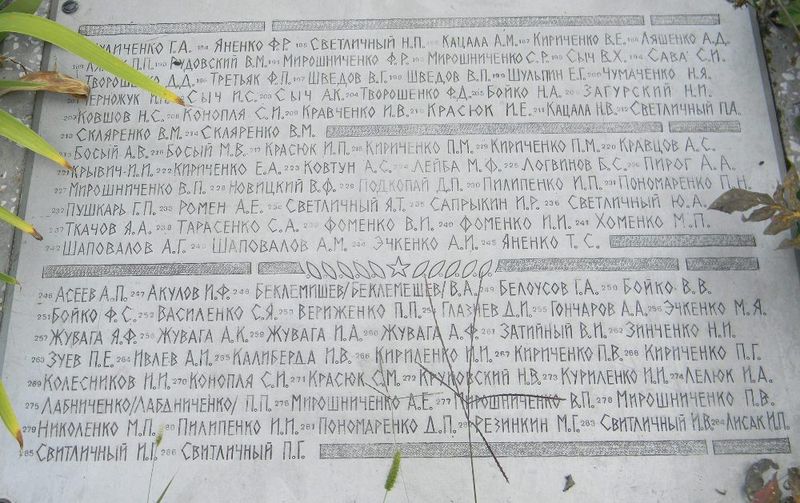 ЯНЕНКО Ф.Р. 185 СВЕТЛИЧНЫЙ Н.П. КАЦАЛА А.М. 187 КИРИЧЕНКО В.Е. 188 ЛЯШЕНКО А.Д.
П.П. РУДОВСКИЙ В.М. МИРОШНИЧЕНКО Ф.Р. МИРОШНИЧЕНКО С.Р. 193 СЫЧ В.Х. 194 САВА С.И.
ТВОРОШЕНКО Д.Д. 196 ТРЕТЬЯК Ф.П. 197 ШВЕДОВ В.Г. ШВЕДОВ В.П. 199 ШУЛЬПИН Е.Г. 200 ЧУМАЧЕНКО Н.Я.
ЧЕРНОЖУК СЫЧ И.С. 203 СЫЧ А.К. 204 ТВОРОШЕНКО Ф.Д. 205 БОЙКО Н.А. 206 ЗАГУРСКИЙ Н.И.
КОВШОВ Н.С. 208 КОНОПЛЯ С.И. 209 КРАВЧЕНКО И.В. 210 КРАСЮК И.Е. 211 КАЦАЛА Н.В. 212 СВЕТЛИЧНЫЙ П.А.
213 СКЛЯРЕНКО В.М. 214 СКЛЯРЕНКО В.М.
215 БОСЫЙ А.В. 216 БОСЫЙ М.В. 217 КРАСЮК И.П. 218 КИРИЧЕНКО П.М. 219 КИРИЧЕНКО П.М. 220 КРАВЦОВ А.С.
221 КРЫВИЧ И.И. 222 КИРИЧЕНКО Е.А. 223 КОВТУН А.С. 224 ЛЕЙБА М.Ф. 225 ЛОГВИНОВ Б.С. 226 ПИРОГ А.А.
227 МИРОШНИЧЕНКО В.П. 228 НОВИЦКИЙ В.Ф. 229 ПОДКОПАЙ Д.П. 230 ПИЛИПЕНКО И.П. 231 ПОНОМАРЕНКО П.Н.
232 ПУШКАРЬ Г.П. 233 РОМЕН А.Е. 234 СВЕТЛИЧНЫЙ Я.Т. 235 САПРЫКИН И.Р. 236 СВЕТЛИЧНЫЙ Ю.А.
237 ТКАЧОВ Я.А. 238 ТАРАСЕНКО С.А. 239 ФОМЕНКО В.И. 240 ФОМЕНКО И.И. 241 ХОМЕНКО М.П.
242 ШАПОВАЛОВ А.Г. 243 ШАПОВАЛОВ А.М. 244 ЭЧКЕНКО А.И. 245 ЯНЕНКО Т.С.
246 АСЕЕВ А.П. 247 АКУЛОВ И.Ф. 248 БЕКЛЕМИШЕВ/БЕКЛЕМЕЩЕВ/ В.А. 249 БЕЛОУСОВ Г.А. 250 БОЙКО В.В.
251 БОЙКО Ф.С. 252 ВАСИЛЕНКО С.Я. 253 ВЕРИЖЕНКО П.П. 254 ГЛАЗНЕВ Д.И. 255 ГОНЧАРОВ А.А. 256 ЭЧКЕНКО М.Я.
257 ЖУВАГА Я.Ф. 258 ЖУВАГА А.К. 259 ЖУВАГА И.А. 260 ЖУВАГА А.Ф. 261 ЗАТИЙНЫЙ В.И. 262 ЗИНЧЕНКО Н.И.
263 ЗУЕВ П.Е. 264 ИВЛЕВ А.И. 265 КАЛИБЕРДА И.В. 266 КИРИЛЕНКО И.И. 267 КИРИЧЕНКО П.В. 268 КИРИЧЕНКО П.Г.
269 КОЛЕСНИКОВ И.И. 270 КОНОПЛЯ С.И. 271 КРАСЮК С.М. 272 КРУКОВСКИЙ Н.В. 273 КУРИЛЕНКО И.И. 274 ЛЕЛЮК И.Д.
275 ЛАБНИЧЕНКО/ЛАБДНИЧЕНКО/ П.П. 276 МИРОШНИЧЕНКО А.Е. 277 МИРОШНИЧЕНКО В.П. 278 МИРОШНИЧЕНКО П.В.
279 НИКОЛЕНКО М.П. 280 ПИЛИПЕНКО И.И. 281 ПОНОМАРЕНКО Д.П. 282 РЕЗИНКИН М.Г. 283 СВИТЛИЧНЫЙ И.В. 284 ЛИСАК И.П.
285 СВИТЛИЧНЫЙ И.Г. 286 СВИТЛИЧНЫЙ П.Г.